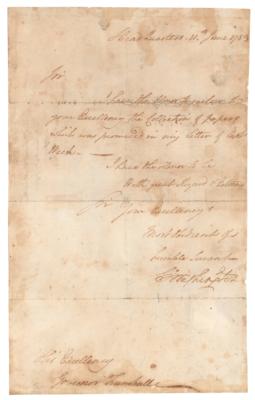 Head Quarters 11th June 1783
Sir
I have the Honor to
your Excellency the Collection of papers
which was promised in my Letter of last
Week.—
I have the Honor to be
With great Regard & Esteem
Sir Your Excellency's
Most Obedient &
humble Servant
G Washington
His Excellency
Governor Trumbull